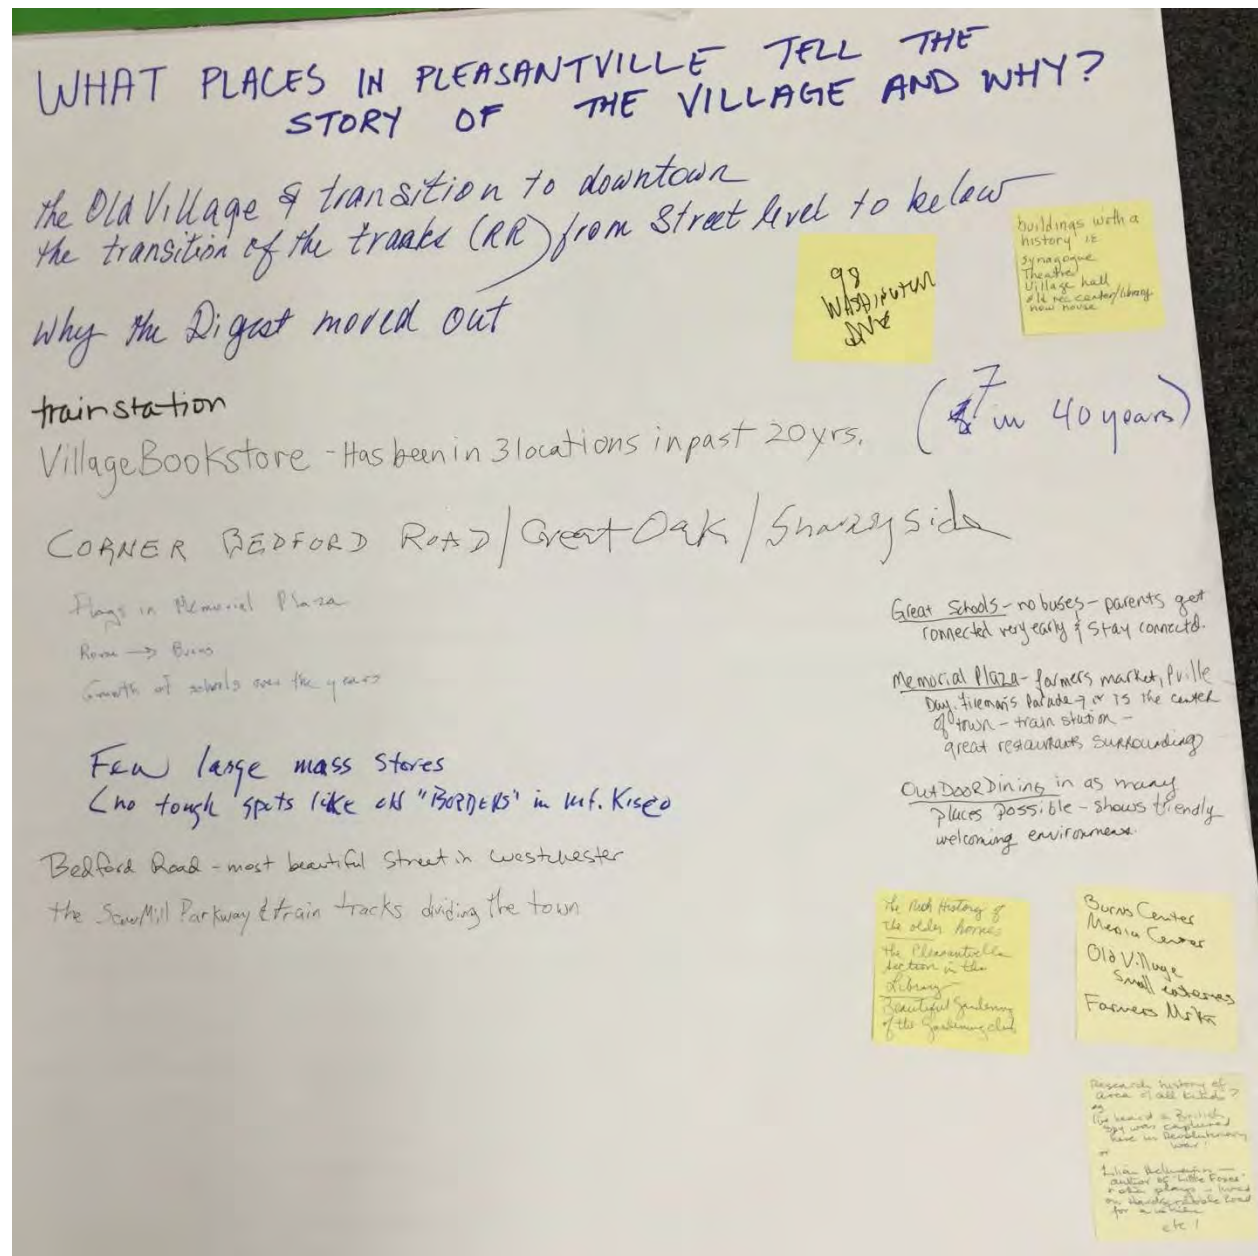 WHAT PLACES IN PLEASANTVILLE TELL THE
STORY OF THE VILLAGE AND WHY?
the Old Village & transition to downtown
the transition of the tracks (RR) from Street level to below
why the Digest moved out
buildings with a
history ie
synagogue
Theatre
Village hall
old rec center/library
now house
98
WASHINGTON
AVE
train station
Village Bookstore - Has been in 3 locations in past 20 yrs.
(7 in 40 years)
CORNER BEDFORD ROAD/Great Oak/Sunnyside
Flags in Memorial Plaza
Rome → Burns
Growth of schools over the years
Few large mass stores
(no tough spots like old "BORDERS" in Mt. Kisco
Bedford Road - most beautiful Street in Westchester
the SawMill Parkway & train tracks dividing the town
Great Schools - no buses - parents get
connected very early & stay connectd.
Memorial Plaza - farmers market, Pville
Day, Fireman's Parade → it is the center
of town - train station -
great restaurants surrounding
OutDooR Dining in as many
places possible - shows friendly
welcoming environment.
The Rich History of
the older homes
the Pleasantville
section in the
Library
Beautiful Gardening
of the Gardening club
Burns Center
Media Center
Old Village
Small eateries
Farmers Mrkt
Research history of
area of all kinds?
eg
I've heard a British
spy was captured
here in Revolutionary
War!
or
Lilian Hellman
author of "Little Foxes"
plays - lived
on Hardscrabble Road
for a while
etc!